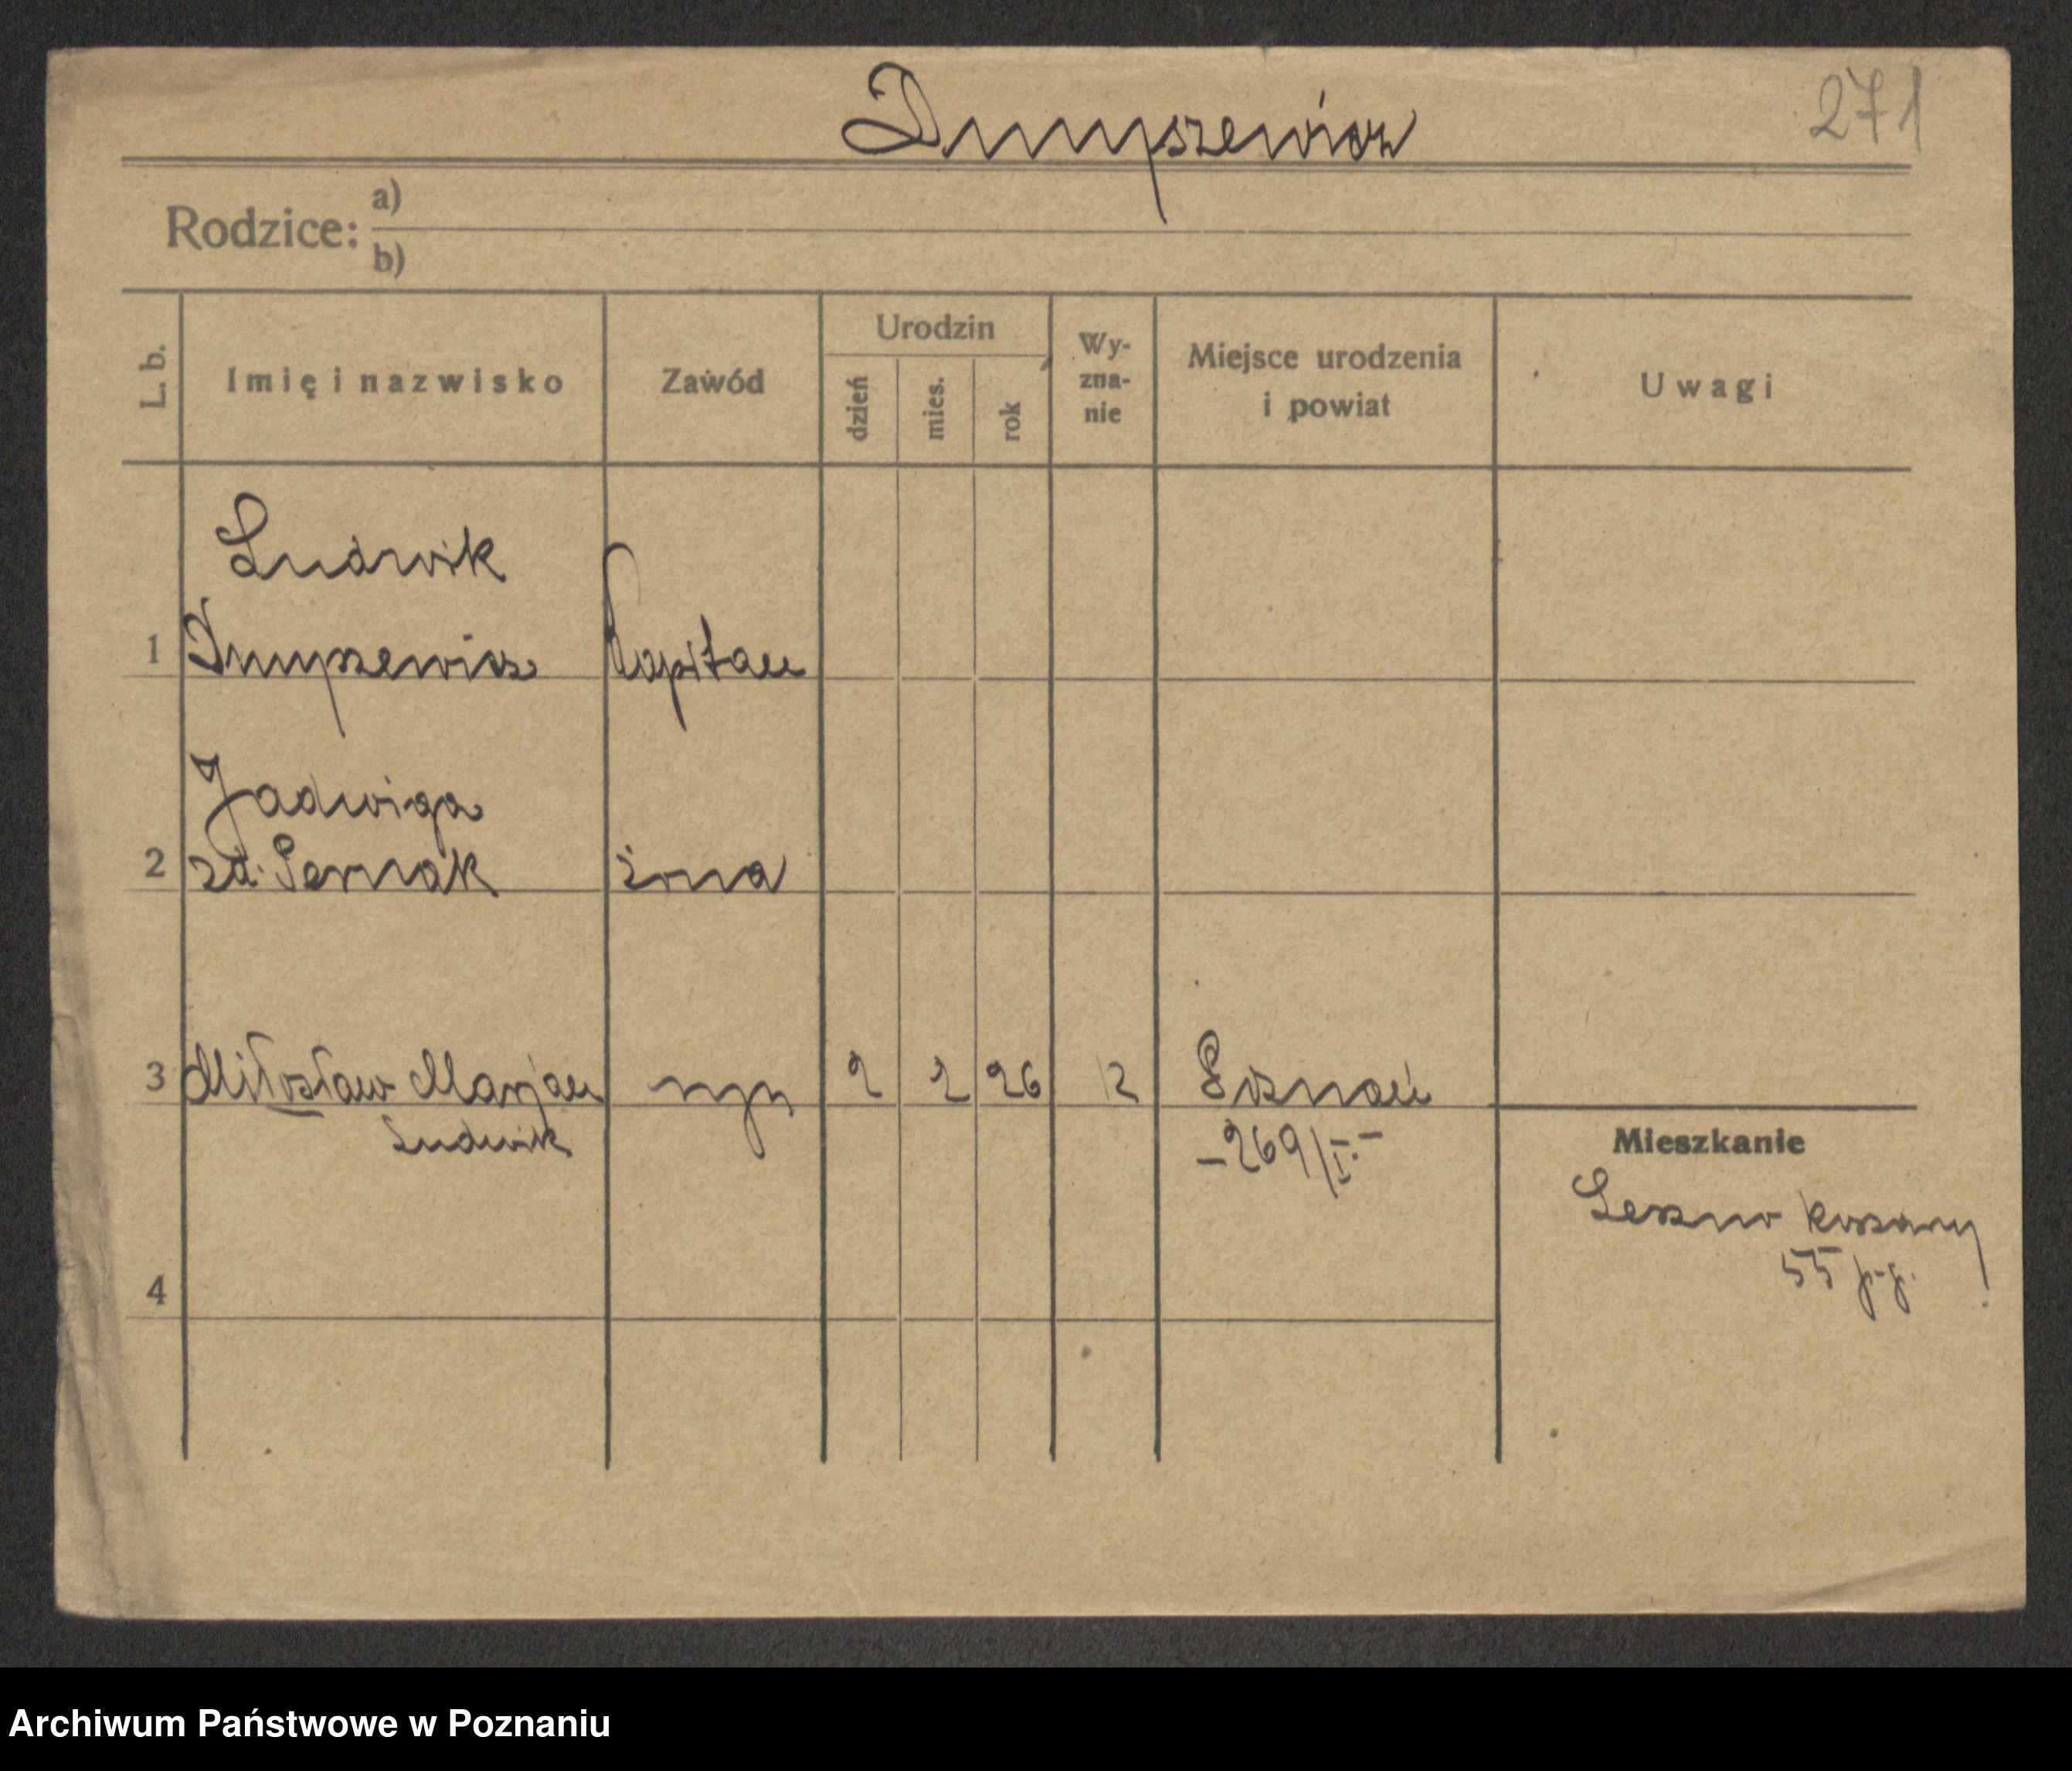 Dmyszewicz
271
Rodzice: a)
b)
L. b. Imię i nazwisko Zawód Urodzin dzień mies. rok Wy-zna-nie Miejsce urodzenia i powiat Uwagi
Ludwik
1 Dmyszewicz Kapitan
Jadwiga
2 zd. żona
3 Miłosław Marjan syn 2 2 26 R Poznań
Ludwik -269/I.-
Mieszkanie
Leszno koszary
55 p.p.
4
Archiwum Państwowe w Poznaniu